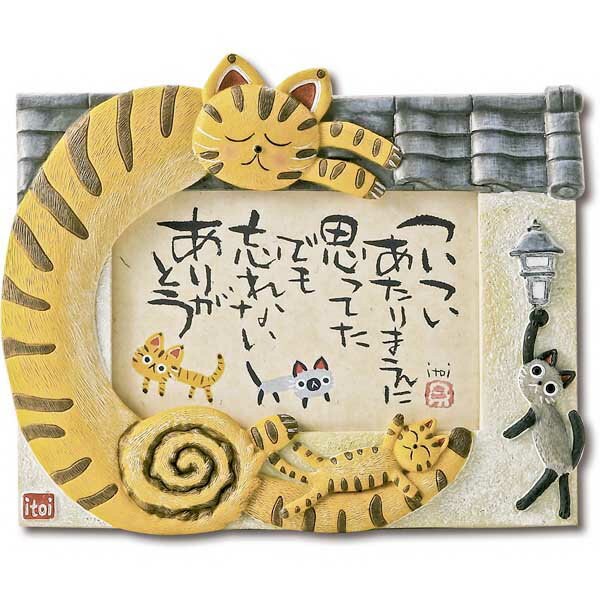 ついつい
あたりまえに
思ってた
でも
忘れない
ありが
とう
itoi
itoi